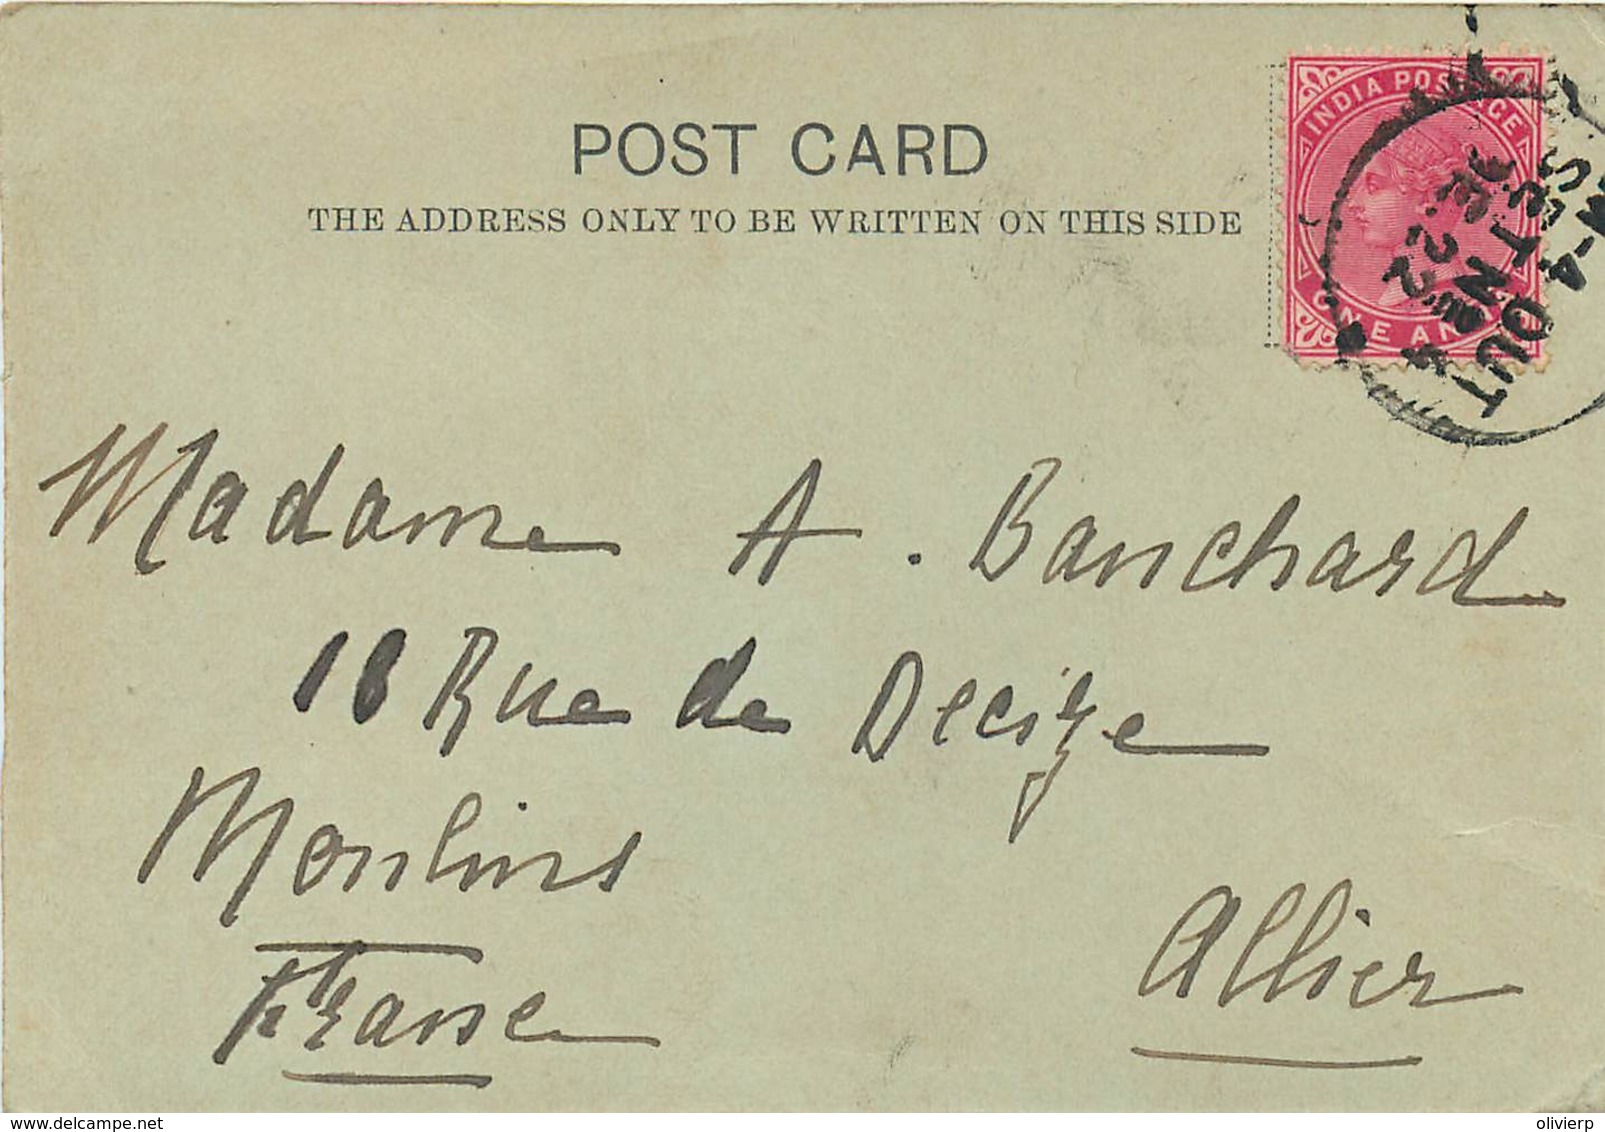 POST CARD
THE ADDRESS ONLY TO BE WRITTEN ON THIS SIDE
INDIA POSTAGE
ONE ANNA
OUT
DE.22
Madame A. Banchard
18 Rue de Decize
Moulins
Allier
France
delcampe.net
olivierp